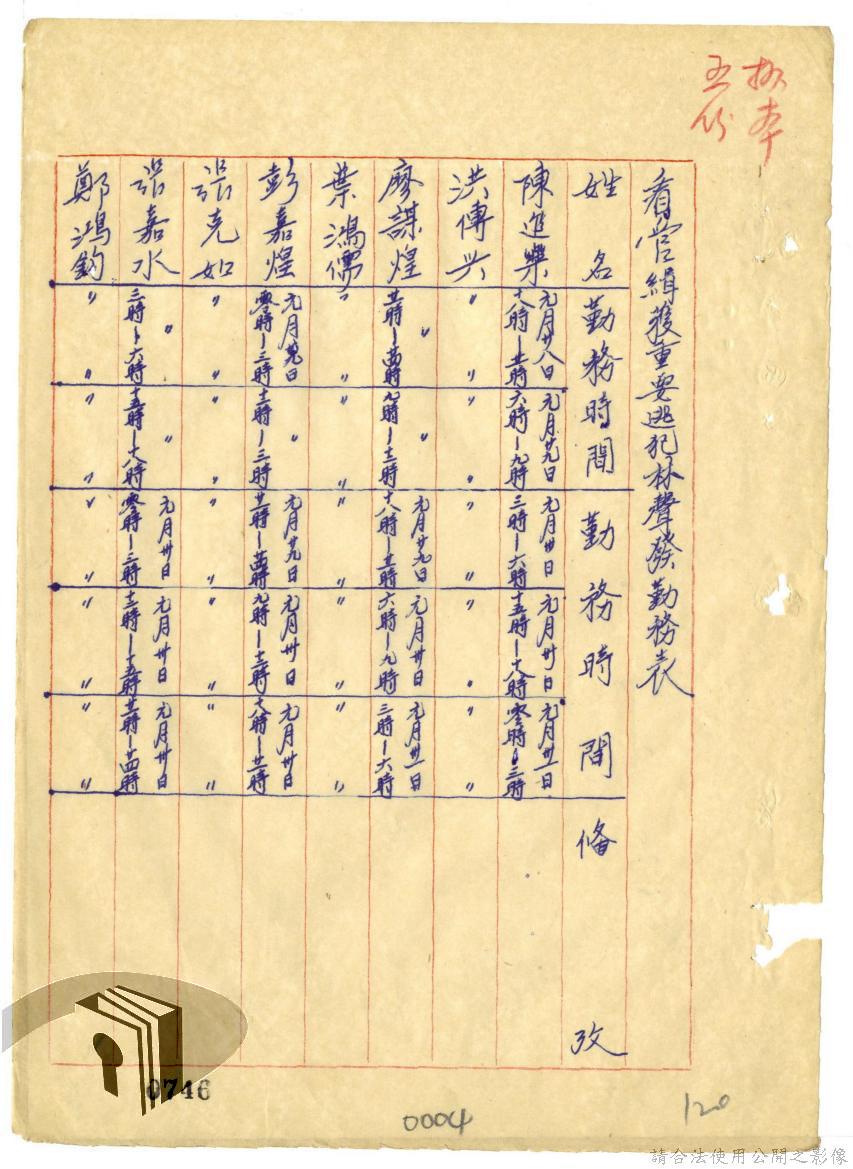 抄本
五份
看管緝獲重要逃犯林聲發勤務表
姓名 勤務時間 勤務時間 備攷
陳進樂 元月廿八日 十八時-廿一時 元月廿九日 六時-九時 元月卅日 三時-六時 元月卅日 十五時-十八時 元月卅一日 零時-三時
洪傳兴 〃 〃 〃 〃 〃 〃 〃 〃 〃 〃
廖謀煌 〃 廿一時-廿四時 〃 九時-十二時 元月廿九日 十八時-廿一時 元月卅日 六時-九時 元月卅一日 三時-六時
葉鴻儒 〃 〃 〃 〃 〃 〃 〃 〃 〃 〃
彭嘉煌 元月廿九日 零時-三時 〃 十二時-三時 元月廿九日 廿一時-廿四時 元月卅日 九時-十二時 元月卅日 十八時-廿一時
張克如 〃 〃 〃 〃 〃 〃 〃 〃 〃 〃
張嘉水 〃 三時-六時 〃 十五時-十八時 元月卅日 零時-三時 元月卅日 十二時-十五時 元月卅日 廿一時-廿四時
鄭鴻鈞 〃 〃 〃 〃 〃 〃 〃 〃 〃 〃
0746
0004
120
請合法使用公開之影像